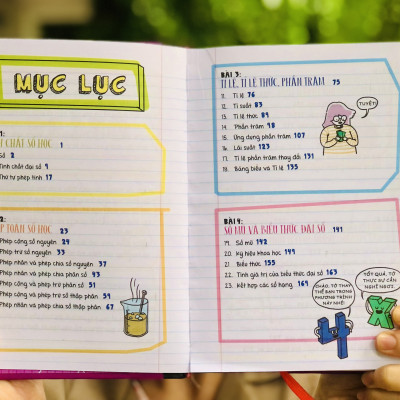 MỤC LỤC
1:
CHẤT SỐ HỌC 1
Số 2
Tính chất đại số 9
Thứ tự phép tính 17
2:
P TOÁN SỐ HỌC 23
Phép cộng số nguyên 24
Phép trừ số nguyên 33
Phép nhân và phép chia số nguyên 37
Phép nhân và phép chia phân số 43
Phép cộng và phép trừ phân số 51
Phép cộng và phép trừ số thập phân 59
Phép nhân và phép chia số thập phân 67
BÀI 3:
TỈ LỆ, TỈ LỆ THỨC, PHẦN TRĂM 75
11. Tỉ lệ 76
12. Tỉ suất 83
13. Tỉ lệ thức 89
14. Phần trăm 98
15. Ứng dụng phần trăm 107
16. Lãi suất 123
17. Tỉ lệ phần trăm thay đổi 131
18. Bảng biểu và Tỉ lệ 135
TUYỆT!
BÀI 4:
SỐ MŨ VÀ BIỂU THỨC ĐẠI SỐ 141
19. Số mũ 142
20. Ký hiệu khoa học 149
21. Biểu thức 155
22. Tính giá trị của biểu thức đại số 163
23. Kết hợp các số hạng 169
CHÀO, TỚ THAY
THẾ BẠN TRONG
PHƯƠNG TRÌNH
NÀY NHÉ!
TỐT QUÁ, TỚ
THỰC SỰ CẦN
NGHỈ NGƠI.
4
X